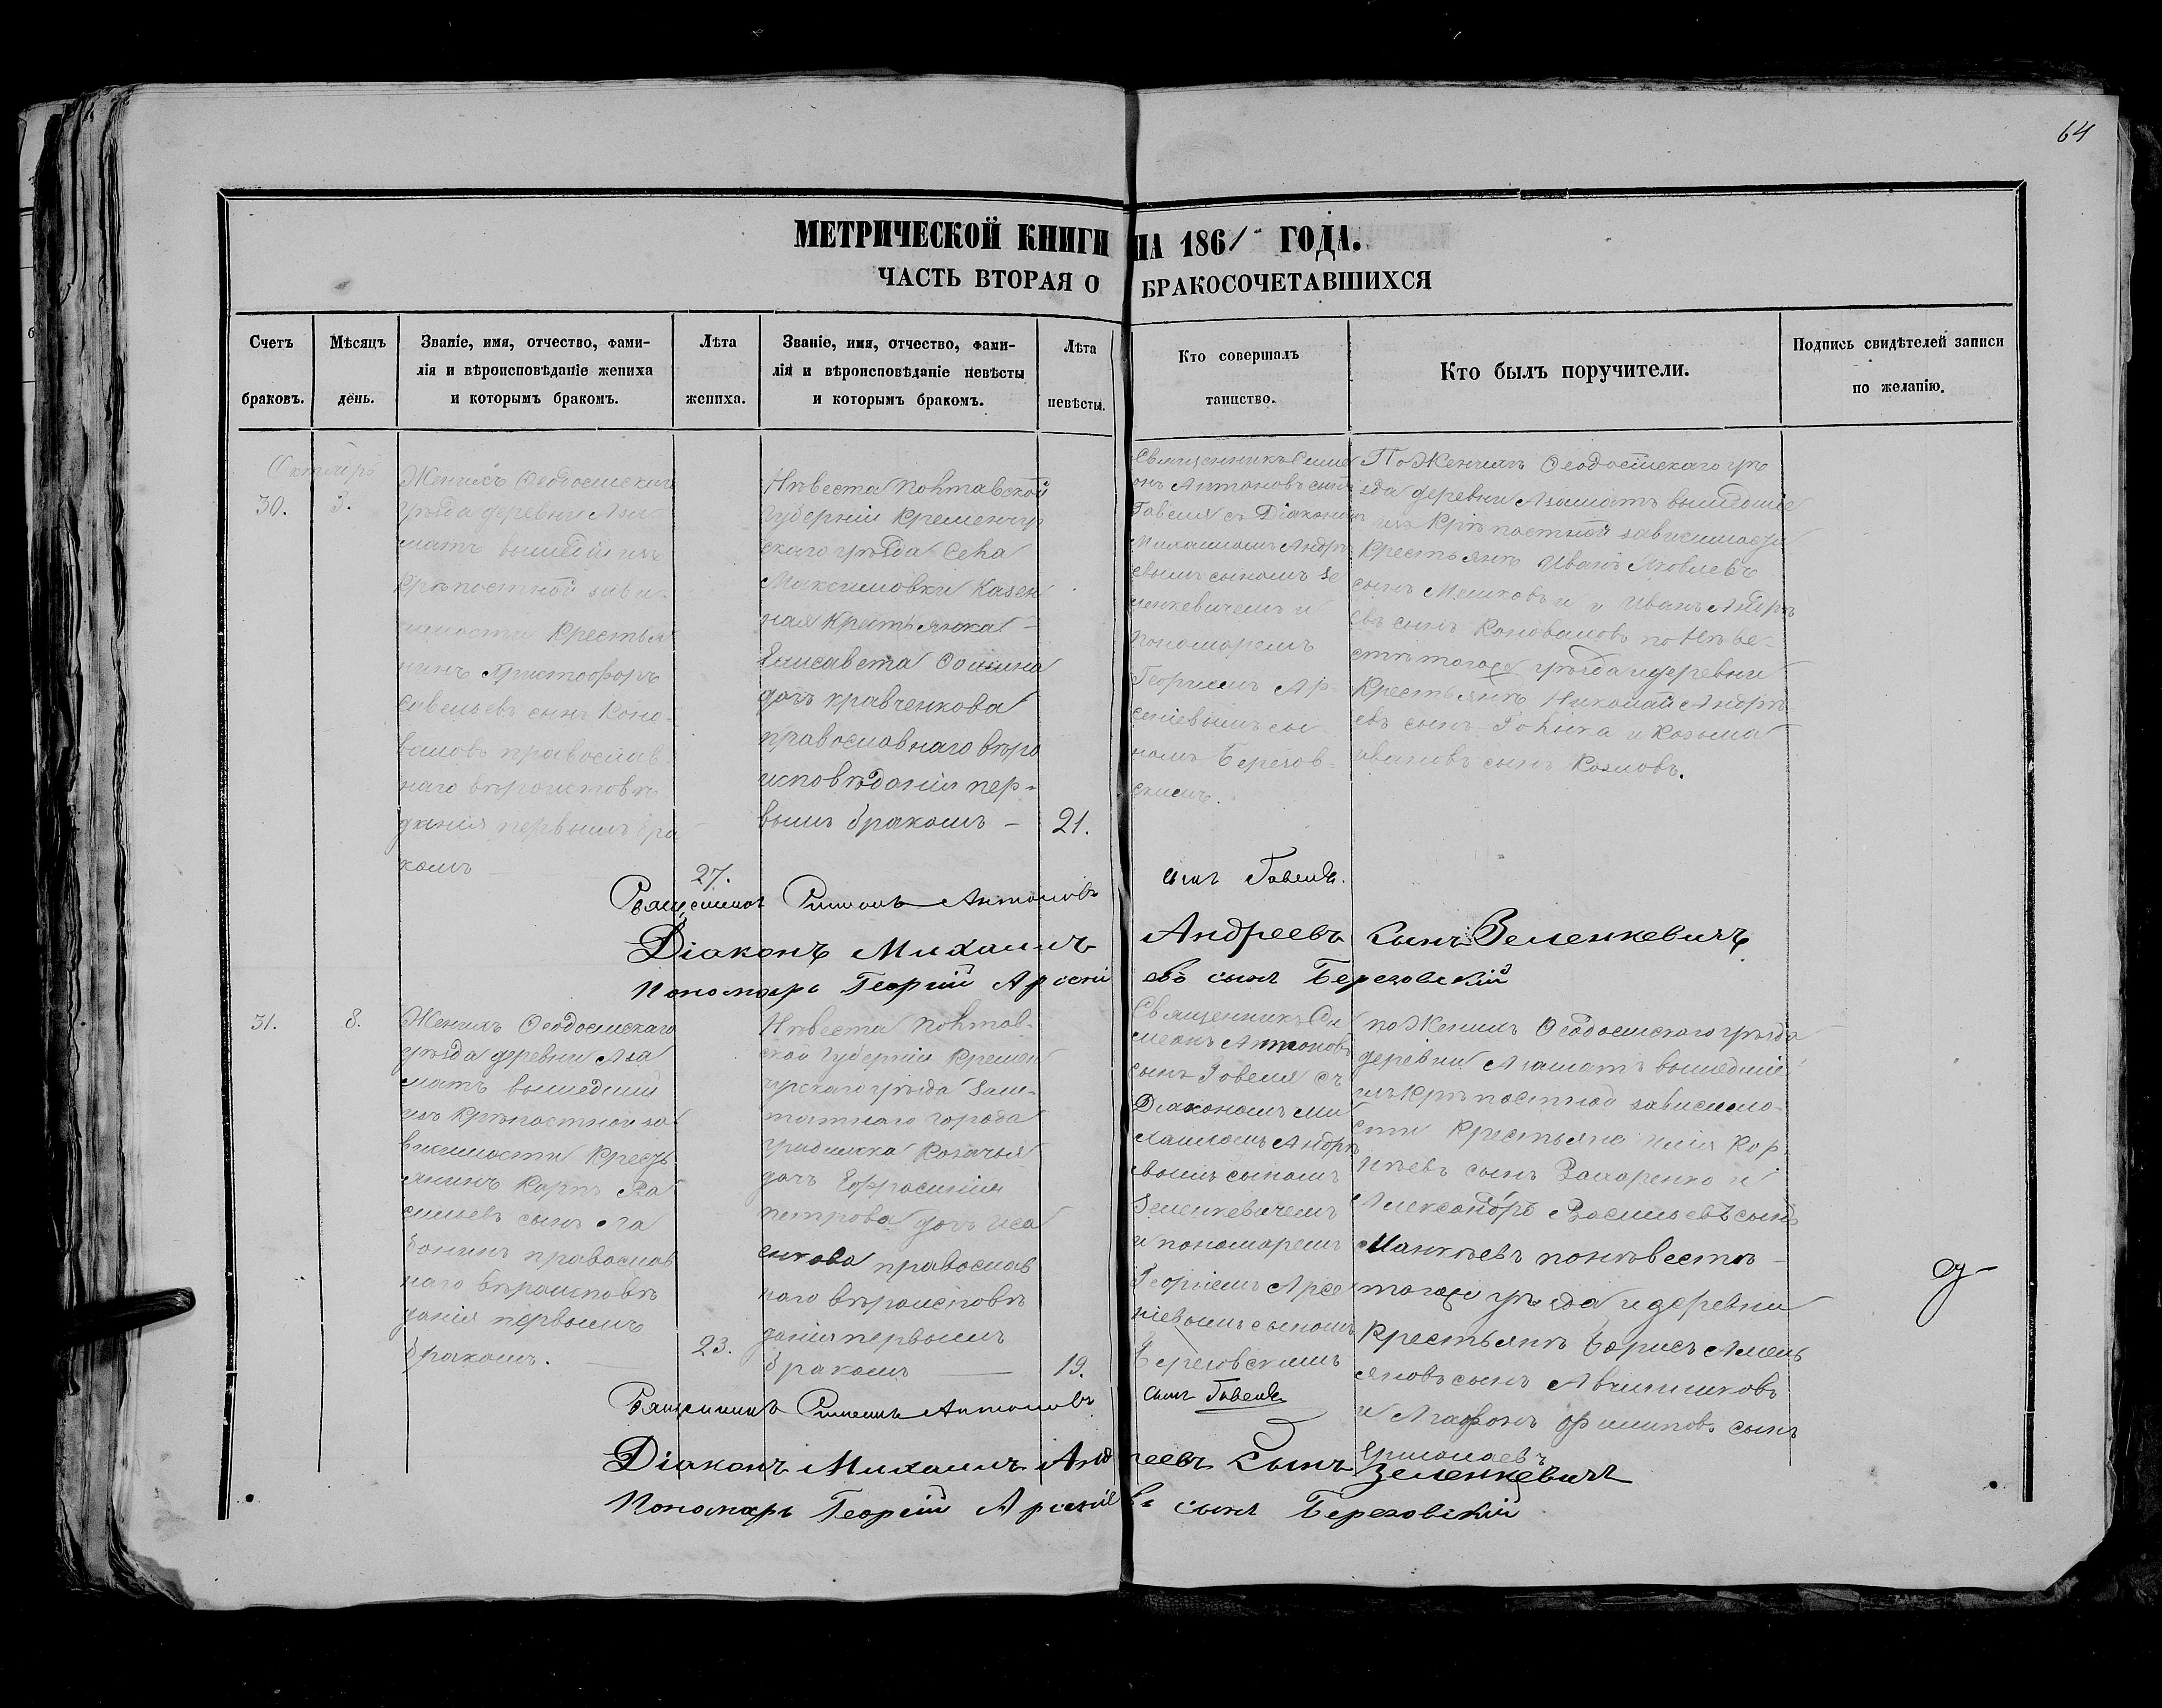 64
МЕТРИЧЕСКОЙ КНИГИ НА 1861 ГОДА.
ЧАСТЬ ВТОРАЯ О БРАКОСОЧЕТАВШИХСЯ
Счетъ браковъ.
Мѣсяцъ день.
Званіе, имя, отчество, фами-
лія и вѣроисповѣданіе жениха
и которымъ бракомъ.
Лѣта
жениха.
Званіе, имя, отчество, фами-
лія и вѣроисповѣданіе невѣсты
и которымъ бракомъ.
Лѣта
невѣсты.
Кто совершалъ
таинство.
Кто былъ поручители.
Подпись свидѣтелей записи
по желанію.
Октября
30.
3.
Женихъ Ѳеодосійскаго
уѣзда деревни Аза-
матъ вышедшій изъ
крѣпостной зави-
симости Крестья
нинъ Христофоръ
Савельевъ сынъ Коно-
валовъ православ-
наго вѣроисповѣ
данія первымъ бра
комъ
27.
Невеста Полтавской
Губерніи Кременчуг
скаго уѣзда Села
Максимовки Казен
ная Крестьянка
Елисавета
дочь Кравченкова
православнаго вѣро
исповѣданія пер-
вымъ бракомъ
21.
Священникъ Симе
онъ Антоновъ сынъ
Гавеля съ Діакономъ
Михаиломъ Андре
евымъ сыномъ Зе
ленкевичемъ и
Пономаремъ
Георгіемъ Ар-
сеніевымъ сы
номъ Березов-
скимъ.
По Женихѣ Ѳеодосійскаго уѣ
зда деревни Азаматъ вышедшіе
изъ Крѣпостной зависимости
Крестьянѣ Иванъ Яковлевъ
сынъ Мешковъ и Иванъ Андре
евъ сынъ Коноваловъ по Невѣ-
стѣ тогоже уѣзда и деревни
Крестьянѣ Николай Андре
евъ сынъ и Козьма
Ивановъ сынъ Козловъ.
Священникъ Симеонъ Антоновъ сынъ Гавеля.
Діаконъ Михаилъ Андреевъ сынъ Зеленкевичъ
Пономарь Георгій Арсеніевъ сынъ Березовскій
31.
8.
Женихъ Ѳеодосійскаго
уѣзда деревни Аза
матъ вышедшій
изъ Крѣпостной за
висимости Кресть
янинъ Карпъ Ва
сильевъ сынъ
православ
наго вѣроисповѣ
данія первымъ
бракомъ.
23.
Невеста Полтав-
ской Губерніи Кремен
чугскаго уѣзда Заш-
татнаго города
Градижка Козачья
дочь Ефросинія
Петрова дочь Иса
енкова православ
наго вѣроисповѣ
данія первымъ
бракомъ
19.
Священникъ Си
меонъ Антоновъ
сынъ Гавеля съ
Діакономъ Ми
хаиломъ Андре
евымъ сыномъ
Зеленкевичемъ
и пономаремъ
Георгіемъ Арсе
ніевымъ сыномъ
Березовскимъ
по Женихѣ Ѳеодосійскаго уѣзда
деревни Азаматъ вышедшіе
изъ Крѣпостной зависимо-
сти Крестьяне Илія Кор
нѣевъ сынъ Захаренко и
Александръ Васильевъ сынъ
по невестѣ
тогоже уѣзда и деревни
Крестьянѣ Борисъ Емель
яновъ сынъ Авчинниковъ
и Агафонъ Филиповъ сынъ
Ермолаевъ
Священникъ Симеонъ Антоновъ сынъ Гавеля
Діаконъ Михаилъ Андреевъ Сынъ Зеленкевичъ
Пономарь Георгій Арсеніевъ сынъ Березовскій